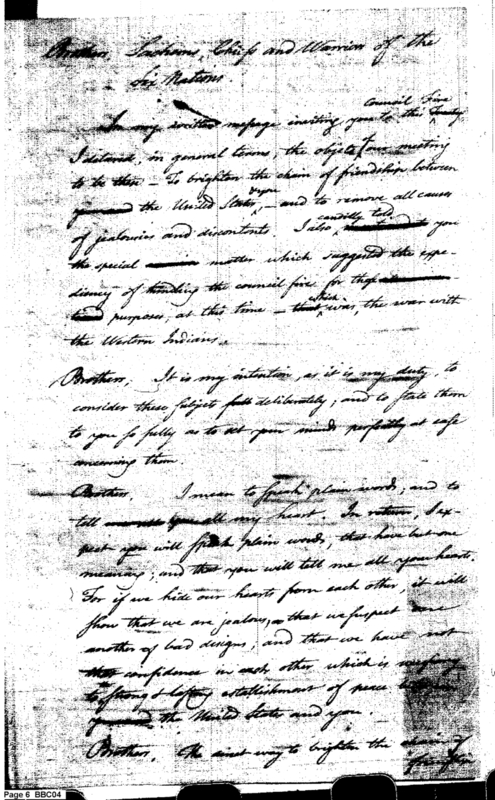 Brothers, Sachems, Chiefs and Warriors of the
Six Nations.
Council Fire
In my written message inviting you to this Treaty
I stated, in general terms, the objects of our meeting
to be these — To brighten the chain of friendship between
you
the United States, — and to remove all causes
candidly told
of jealousies and discontents. I also you
the special matter which suggested the expe-
diency of kindling the council fire for those
which
purposes, at this time — was, the war with
the Western Indians.
Brothers, It is my intention, as it is my duty, to
consider these subjects deliberately; and to state them
to you so fully as to set your minds perfectly at ease
concerning them.
Brothers, I mean to speak plain words, and to
tell you all my heart. In return, I ex-
pect you will speak plain words, that have but one
meaning; and that you will tell me all your hearts.
For if we hide our hearts from each other, it will
show that we are jealous, that we suspect one
another of bad designs, and that we have not
confidence in each other, which is
to a strong & lasting establishment of peace between
the United States and you.
Brothers, The surest way to brighten the chain of
friendship
Page 6 BBC04